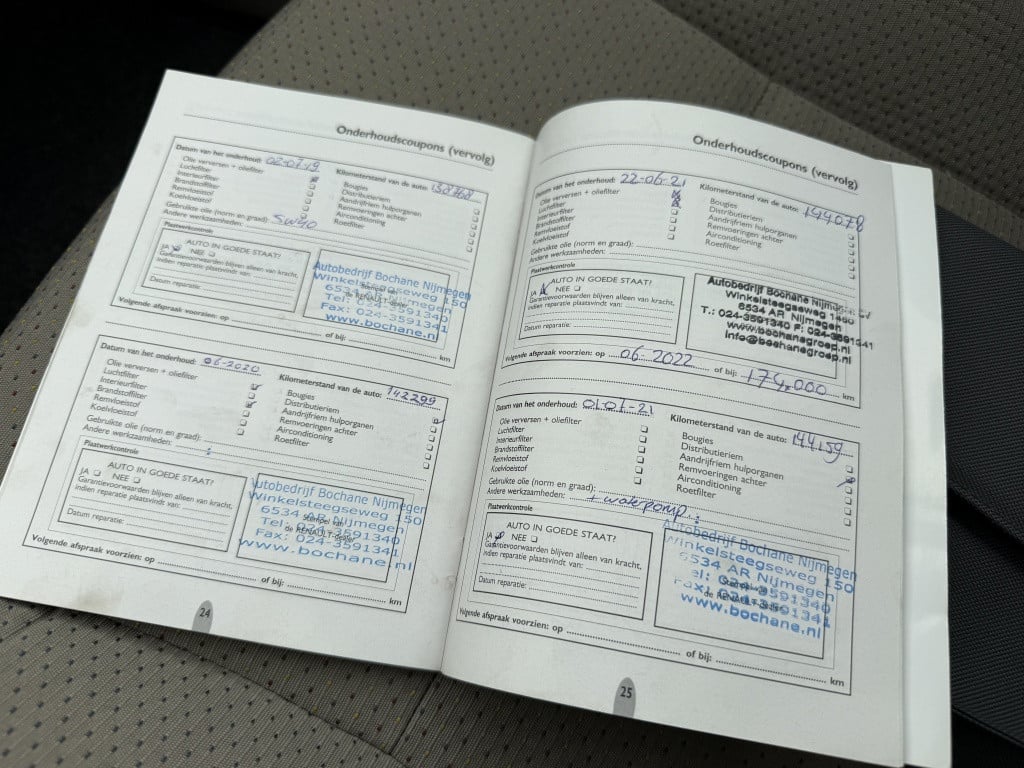 Onderhoudscoupons (vervolg)
Datum van het onderhoud: 02-07-19
Kilometerstand van de auto:
Olie verversen + oliefilter
Luchtfilter
Interieurfilter
Brandstoffilter
Remvloeistof
Koelvloeistof
Bougies
Distributieriem
Aandrijfriem hulporganen
Remvoeringen achter
Airconditioning
Roetfilter
Gebruikte olie (norm en graad): 5W40
Andere werkzaamheden:
Plaatwerkcontrole
AUTO IN GOEDE STAAT?
JA NEE
Garantievoorwaarden blijven alleen van kracht,
indien reparatie plaatsvindt van:
Datum reparatie:
Autobedrijf Bochane Nijmegen
Winkelsteegseweg 150
6534 AR Nijmegen
Tel: 024-3591340
Fax: 024-3591341
www.bochane.nl
Volgende afspraak voorzien: op of bij: km
Datum van het onderhoud: 06-2020
Kilometerstand van de auto: 142299
Olie verversen + oliefilter
Luchtfilter
Interieurfilter
Brandstoffilter
Remvloeistof
Koelvloeistof
Bougies
Distributieriem
Aandrijfriem hulporganen
Remvoeringen achter
Airconditioning
Roetfilter
Gebruikte olie (norm en graad):
Andere werkzaamheden:
Plaatwerkcontrole
AUTO IN GOEDE STAAT?
JA NEE
Garantievoorwaarden blijven alleen van kracht,
indien reparatie plaatsvindt van:
Datum reparatie:
Stempel van
de RENAULT-dealer
Autobedrijf Bochane Nijmegen
Winkelsteegseweg 150
6534 AR Nijmegen
Tel: 024-3591340
Fax: 024-3591341
www.bochane.nl
Volgende afspraak voorzien: op of bij: km
24
Onderhoudscoupons (vervolg)
Datum van het onderhoud: 22-06-21
Kilometerstand van de auto: 149078
Olie verversen + oliefilter
Luchtfilter
Interieurfilter
Brandstoffilter
Remvloeistof
Koelvloeistof
Bougies
Distributieriem
Aandrijfriem hulporganen
Remvoeringen achter
Airconditioning
Roetfilter
Gebruikte olie (norm en graad):
Andere werkzaamheden:
Plaatwerkcontrole
AUTO IN GOEDE STAAT?
JA NEE
Garantievoorwaarden blijven alleen van kracht,
indien reparatie plaatsvindt van:
Datum reparatie:
Autobedrijf Bochane Nijmegen
Winkelsteegseweg 150
6534 AR Nijmegen
T.: 024-3591340 F: 024-3591341
www.bochane.nl
info@bochanegroep.nl
Volgende afspraak voorzien: op 06 2022 of bij: 174.000 km
Datum van het onderhoud: 01-01-21
Kilometerstand van de auto: 144159
Olie verversen + oliefilter
Luchtfilter
Interieurfilter
Brandstoffilter
Remvloeistof
Koelvloeistof
Bougies
Distributieriem
Aandrijfriem hulporganen
Remvoeringen achter
Airconditioning
Roetfilter
Gebruikte olie (norm en graad):
Andere werkzaamheden: + waterpomp
Plaatwerkcontrole
AUTO IN GOEDE STAAT?
JA NEE
Garantievoorwaarden blijven alleen van kracht,
indien reparatie plaatsvindt van:
Datum reparatie:
Autobedrijf Bochane Nijmegen
Winkelsteegseweg 150
6534 AR Nijmegen
Tel: 024-3591340
Fax: 024-3591341
www.bochane.nl
Volgende afspraak voorzien: op of bij: km
25